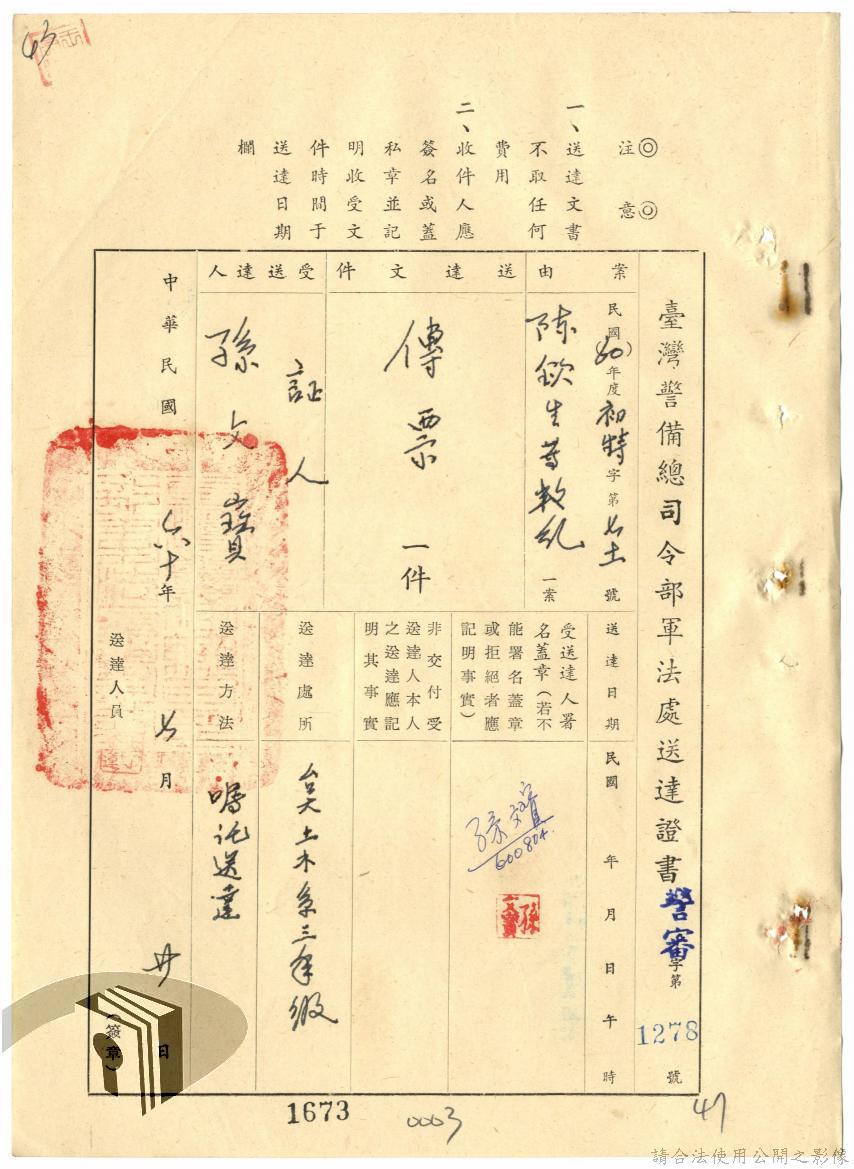 ◎注意◎
一、送達文書
不取任何
費用
二、收件人應
簽名或蓋
私章並記
明收受文
件時間于
送達日期
欄
臺灣警備總司令部軍法處送達證書 警審字第1278號
案由
民國(60)年度初特字第 號
陳欽生等叛亂一案
送達文件
傳票 一件
受送達人
証人
孫文寶
送達日期
民國 年 月 日 午 時
受送達人署
名蓋章(若不
能署名蓋章
或拒絕者應
記明事實)
孫文寶
600804
孫文寶
非交付受
送達人本人
之送達應記
明其事實
送達處所
土木系三年級
送達方法
囑託送達
中華民國六十年七月廿日
送達人員
(簽章)
1673
0003
47
請合法使用公開之影像